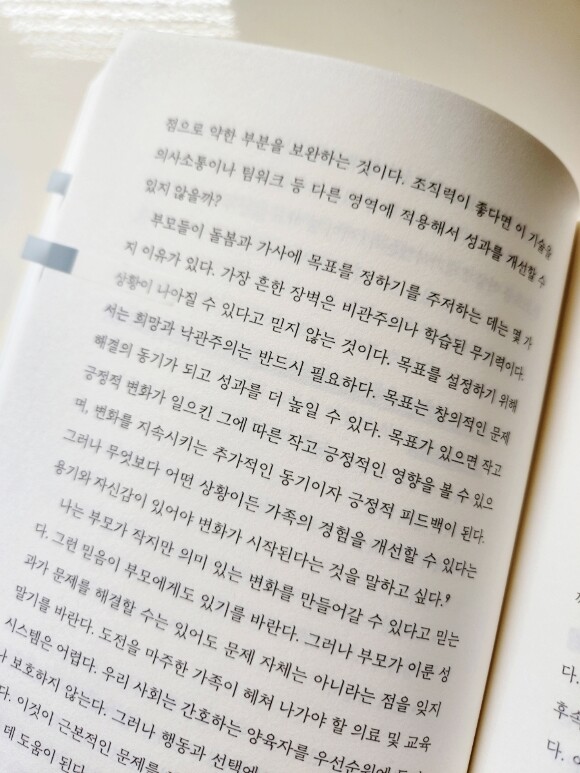 점으로 약한 부분을 보완하는 것이다. 조직력이 좋다면 이 기술을
의사소통이나 팀워크 등 다른 영역에 적용해서 성과를 개선할 수
있지 않을까?
부모들이 돌봄과 가사에 목표를 정하기를 주저하는 데는 몇 가
지 이유가 있다. 가장 흔한 장벽은 비관주의나 학습된 무기력이다.
상황이 나아질 수 있다고 믿지 않는 것이다. 목표를 설정하기 위해
서는 희망과 낙관주의는 반드시 필요하다. 목표는 창의적인 문제
해결의 동기가 되고 성과를 더 높일 수 있다. 목표가 있으면 작고
긍정적 변화가 일으킨 그에 따른 작고 긍정적인 영향을 볼 수 있으
며, 변화를 지속시키는 추가적인 동기이자 긍정적 피드백이 된다.
그러나 무엇보다 어떤 상황이든 가족의 경험을 개선할 수 있다는
용기와 자신감이 있어야 변화가 시작된다는 것을 말하고 싶다.⁹
나는 부모가 작지만 의미 있는 변화를 만들어갈 수 있다고 믿는
다. 그런 믿음이 부모에게도 있기를 바란다. 그러나 부모가 이룬 성
과가 문제를 해결할 수는 있어도 문제 자체는 아니라는 점을 잊지
말기를 바란다. 도전을 마주한 가족이 헤쳐 나가야 할 의료 및 교육
시스템은 어렵다. 우리 사회는 간호하는 양육자를 우선순위에
보호하지 않는다. 그러나 행동과 선택에
다. 이것이 근본적인 문제를
데 도움이 된다.
다.
후속
다.